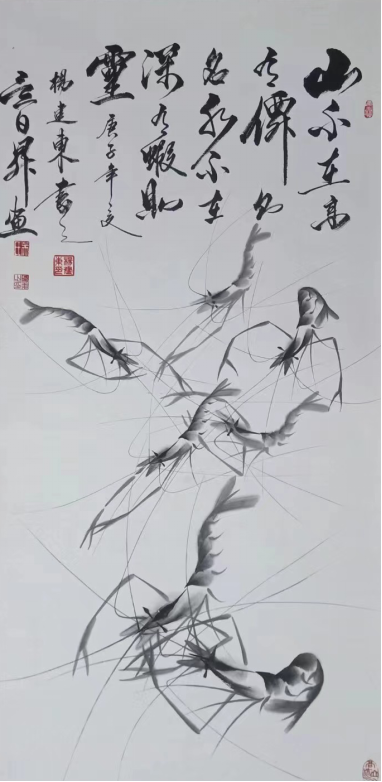 山不在高
有僊則
名水不在
深有蝦則
靈 庚子年之夏
楊建東書之
日昇畫